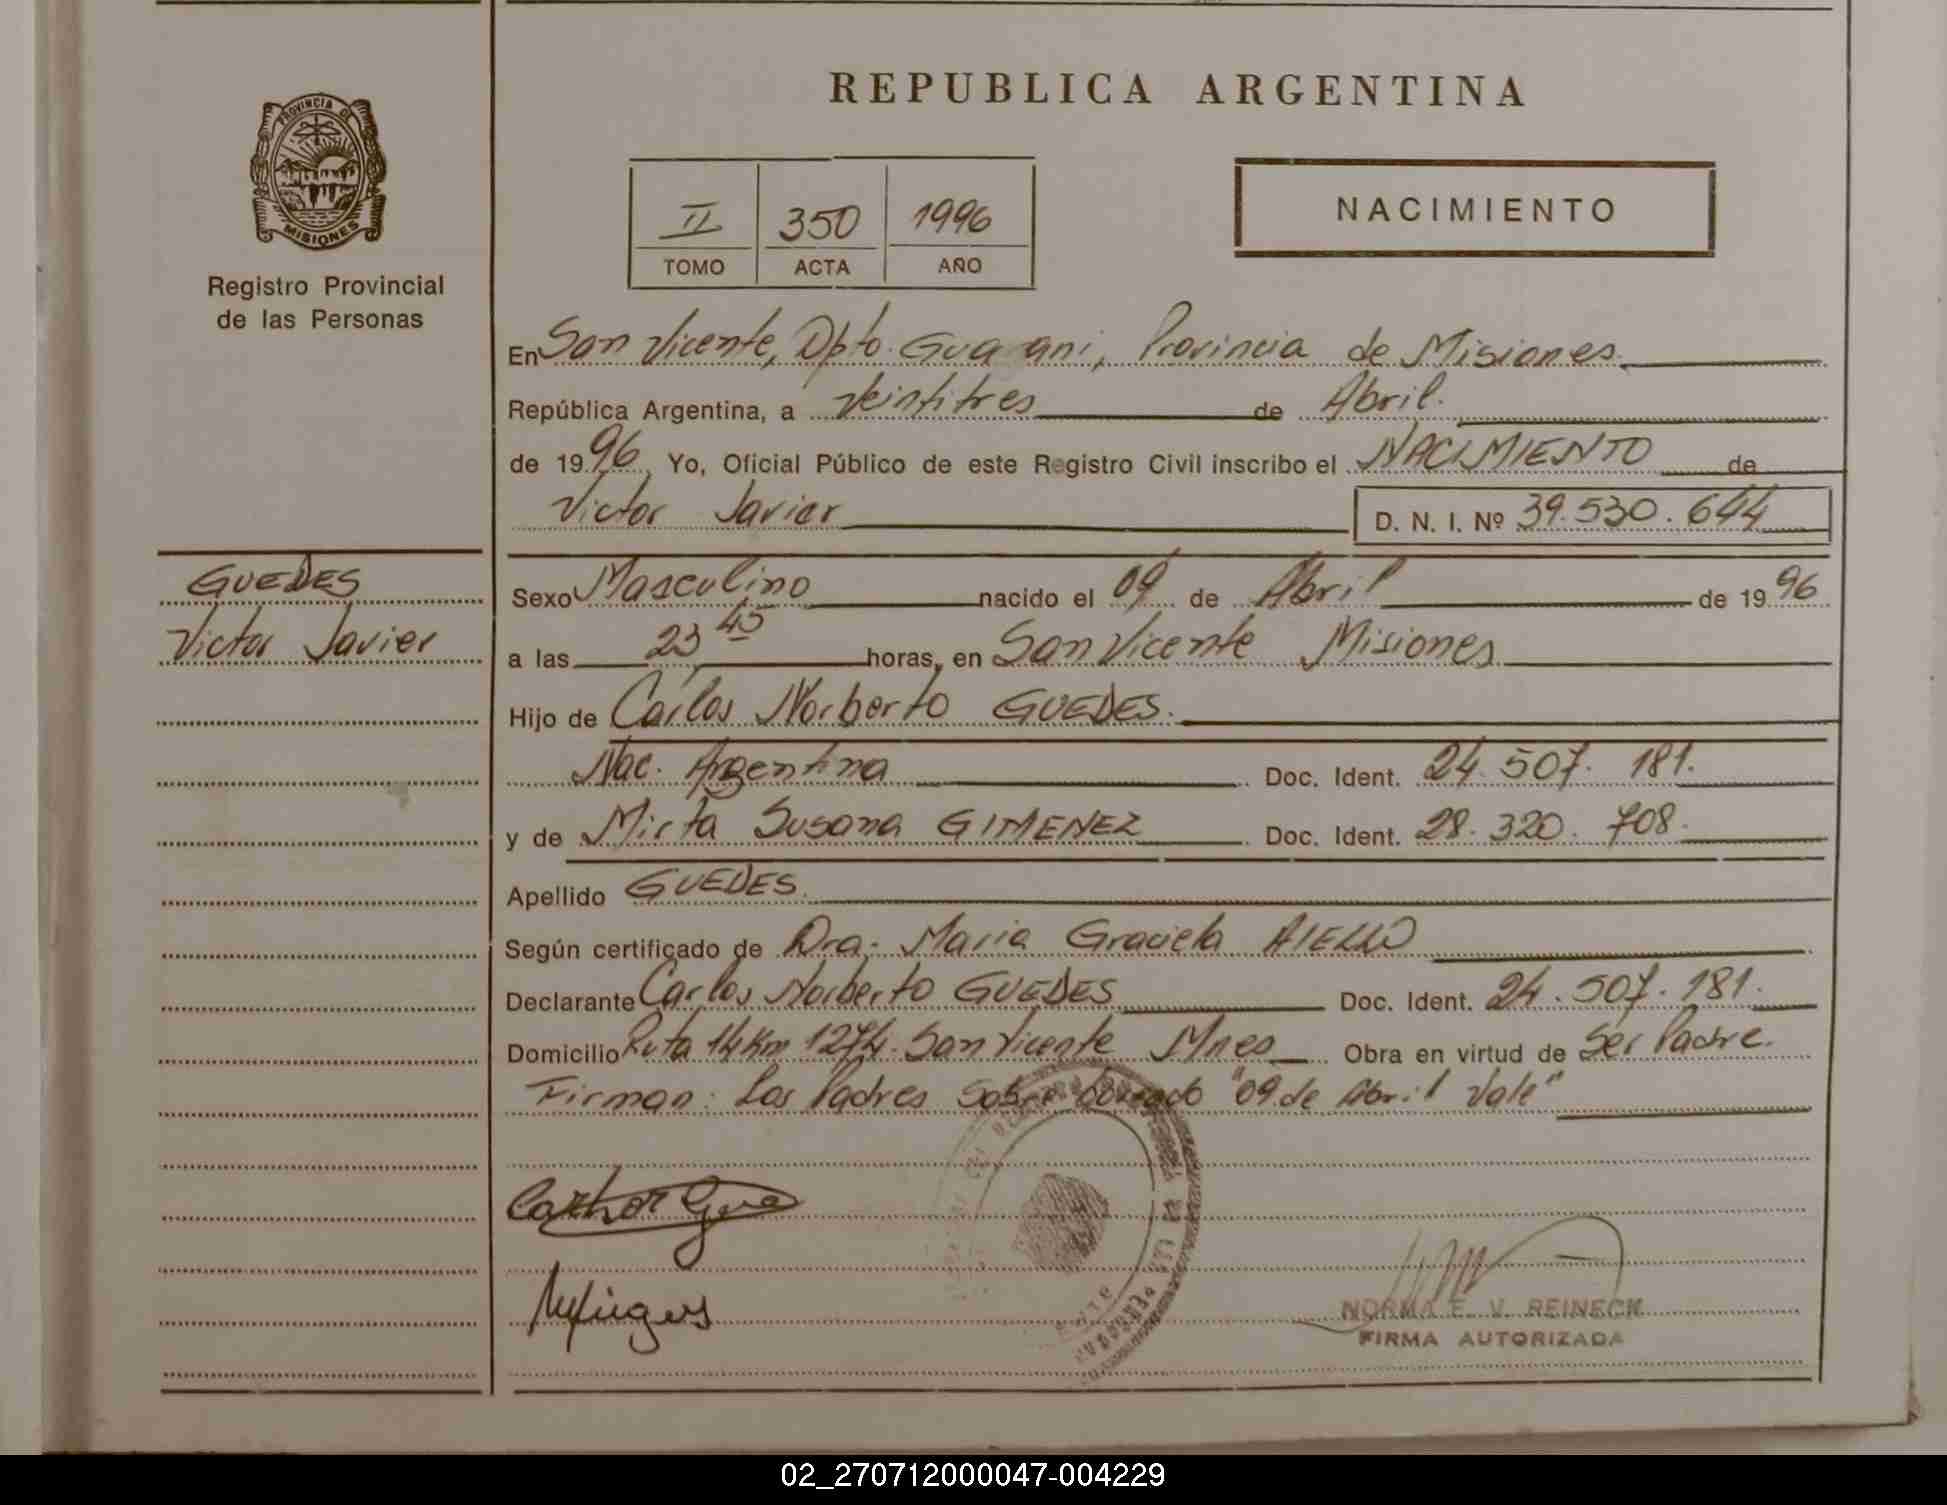 REPUBLICA ARGENTINA
PROVINCIA DE
MISIONES
Registro Provincial
de las Personas
II 350 1996
TOMO ACTA AÑO
NACIMIENTO
En San Vicente, Dpto. Guarani, Provincia de Misiones.
República Argentina, a Veintitres de Abril.
de 1996, Yo, Oficial Público de este Registro Civil inscribo el NACIMIENTO de
Victor Javier D. N. I. Nº 39.530.644
GUEDES
Victor Javier
Sexo Masculino nacido el 09 de Abril de 1996
a las 23 45 horas, en San Vicente Misiones
Hijo de Carlos Norberto GUEDES.
Nac. Argentina Doc. Ident. 24.507.181.
y de Mirta Susana GIMENEZ Doc. Ident. 28.320.708.
Apellido GUEDES.
Según certificado de Dra. Maria Graciela AIELLO
Declarante Carlos Norberto GUEDES Doc. Ident. 24.507.181.
Domicilio Ruta 14 Km 1274. San Vicente Mnes Obra en virtud de Ser Padre.
Firman: Los Padres Sobre borrado "09 de Abril Vale"
NORMA E. V. REINECK
FIRMA AUTORIZADA
02_270712000047-004229